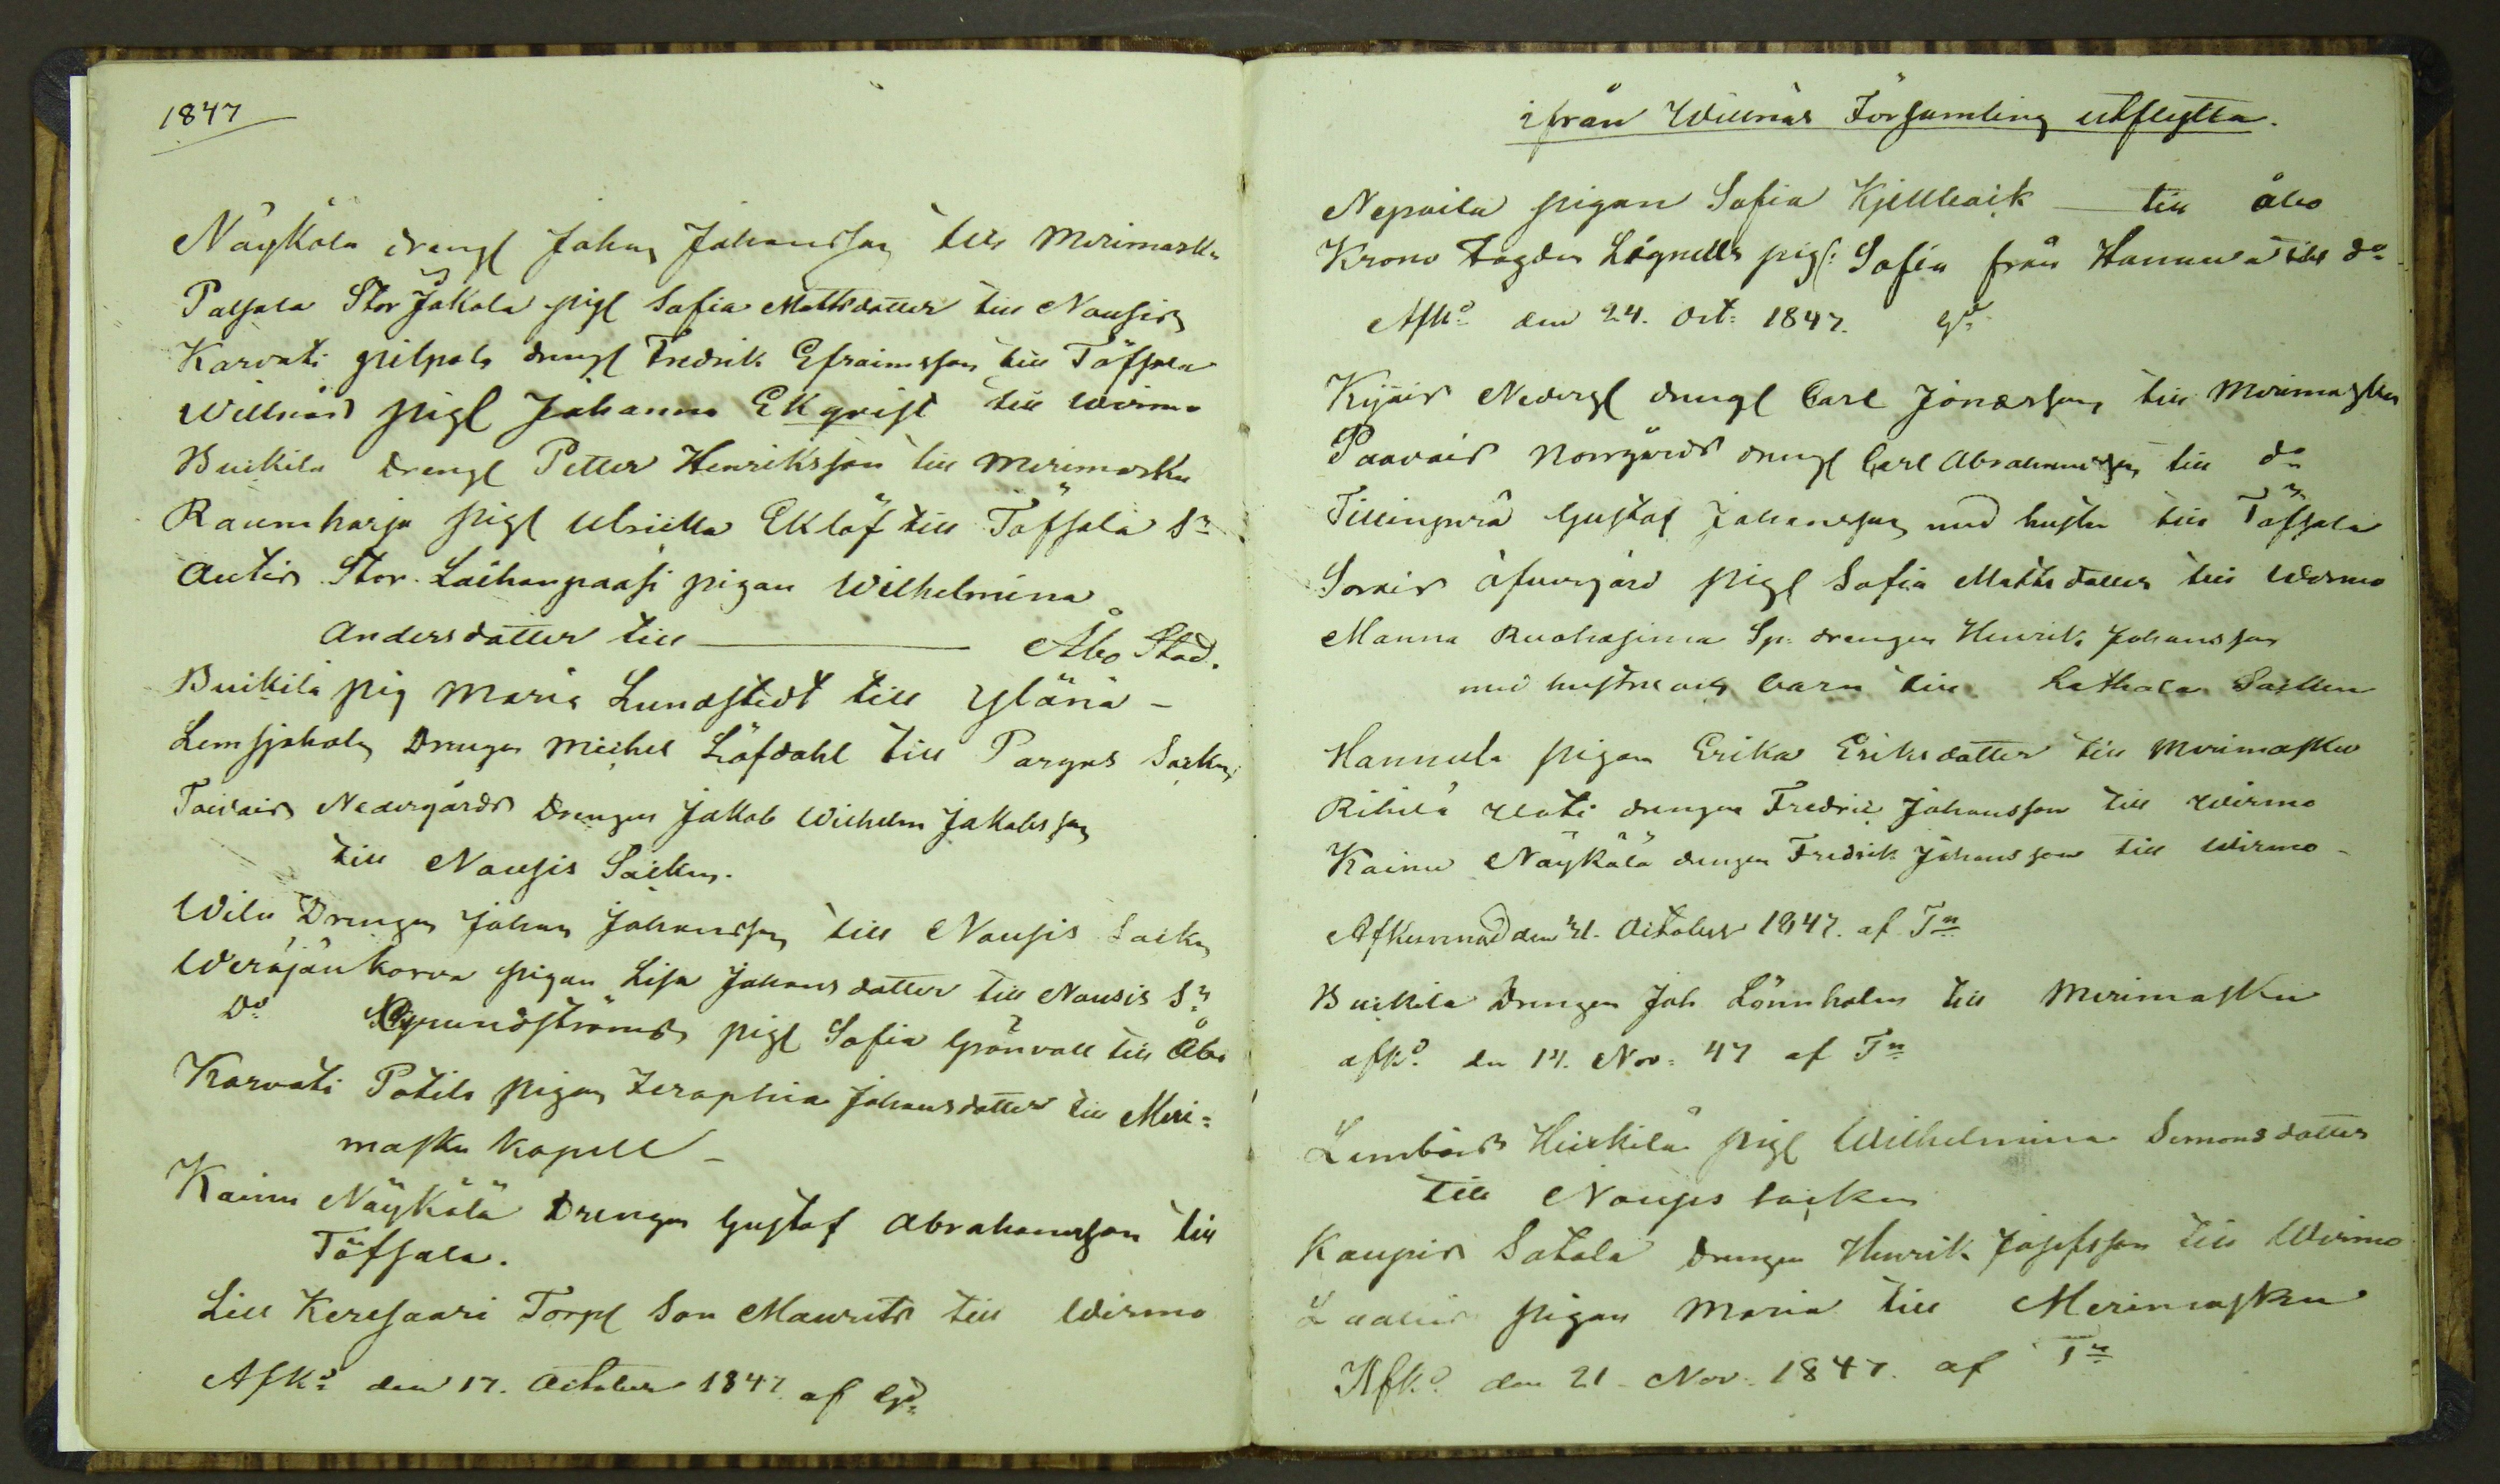 1847
Näykälä drengl Johan Johansson till Merimasku
Palsala Stor Jakola pigl Sofia Mattsdotter till Nousis
Karvati pilpala drengl Fredrik Efraimsson till Töfsala
Willnäs pigl Johanna Ekqvist till Wirmo
Buikila drengl Petter Henriksson till Merimasku
Raumharju pigl Ulricka Eklöf till Töfsala Sn
Autis Stor-Laihanpaasi pigan Wilhelmina
Andersdotter till — Åbo Stad.
Buikila pig Maria Lundstedt till Yläna –
Lemsjoholm Drengen Michel Löfdahl till Pargas Sockn
Taivais Nedergårds Drengen Jakob Wilhelm Jakobsson
till Nousis Sockn.
Wilu Drengen Johan Johansson till Nousis Sockn
Weräjänkorva pigan Lisa Johansdotter till Nousis Sn
Do Grundströms pigl Sofia Grönvall till Åbo
Karvati Potila pigan Seraphia Johansdotter till Meri=
masku kapell –
Kainu Näykälä Drengen Gustaf Abrahamsson till
Töfsala.
Lill Keresaari Torpl Son Maurits till Wirmo
Afkd den 17. October 1847 af Gd
ifrån Willnäs Församling utflytta.
Nepoila pigan Sofia Kjellbäck — till Åbo
Krono Fogden Lignells pigl: Sofia från Hannula till do
Afkd den 24. Oct: 1847. Gd
Kijais Nedergl drengl Carl Jonasson till Merimasku
Paavais Norrgårds drengl Carl Abrahamsson till do
Gustaf Johansson med hustru till Töfsala
Sorais Öfvergård pigl Sofia Mattsdotter till Wirmo
Manna Ruohosima Sp: drengen Henrik Johansson
med hustru och barn till Sockn
Hannula pigan Erika Eriksdotter till Merimasku
Rihilä Uoti drengen Fredric Johansson till Wirmo
Kainu Näykälä drengen Fredrik Johansson till Wirmo –
Afkunnad den 31. October 1847. af Tn
Buikila Drengen Joh Lönnholm till Merimasku
afkd. den 14. Nov: 47 af Tn
Lembois Heikkilä pigl Wilhelmina Simonsdotter
till Nousis socken
Kaupis Satola Drengen Henrik Josefsson till Wirmo
pigan Maria till Merimasku
Afkd. den 21 – Nov. 1847. af Tn